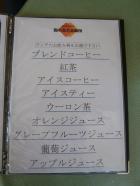 ブレンドコーヒー
紅茶
アイスコーヒー
アイスティー
ウーロン茶
オレンジジュース
グレープフルーツジュース
葡萄ジュース
アップルジュース